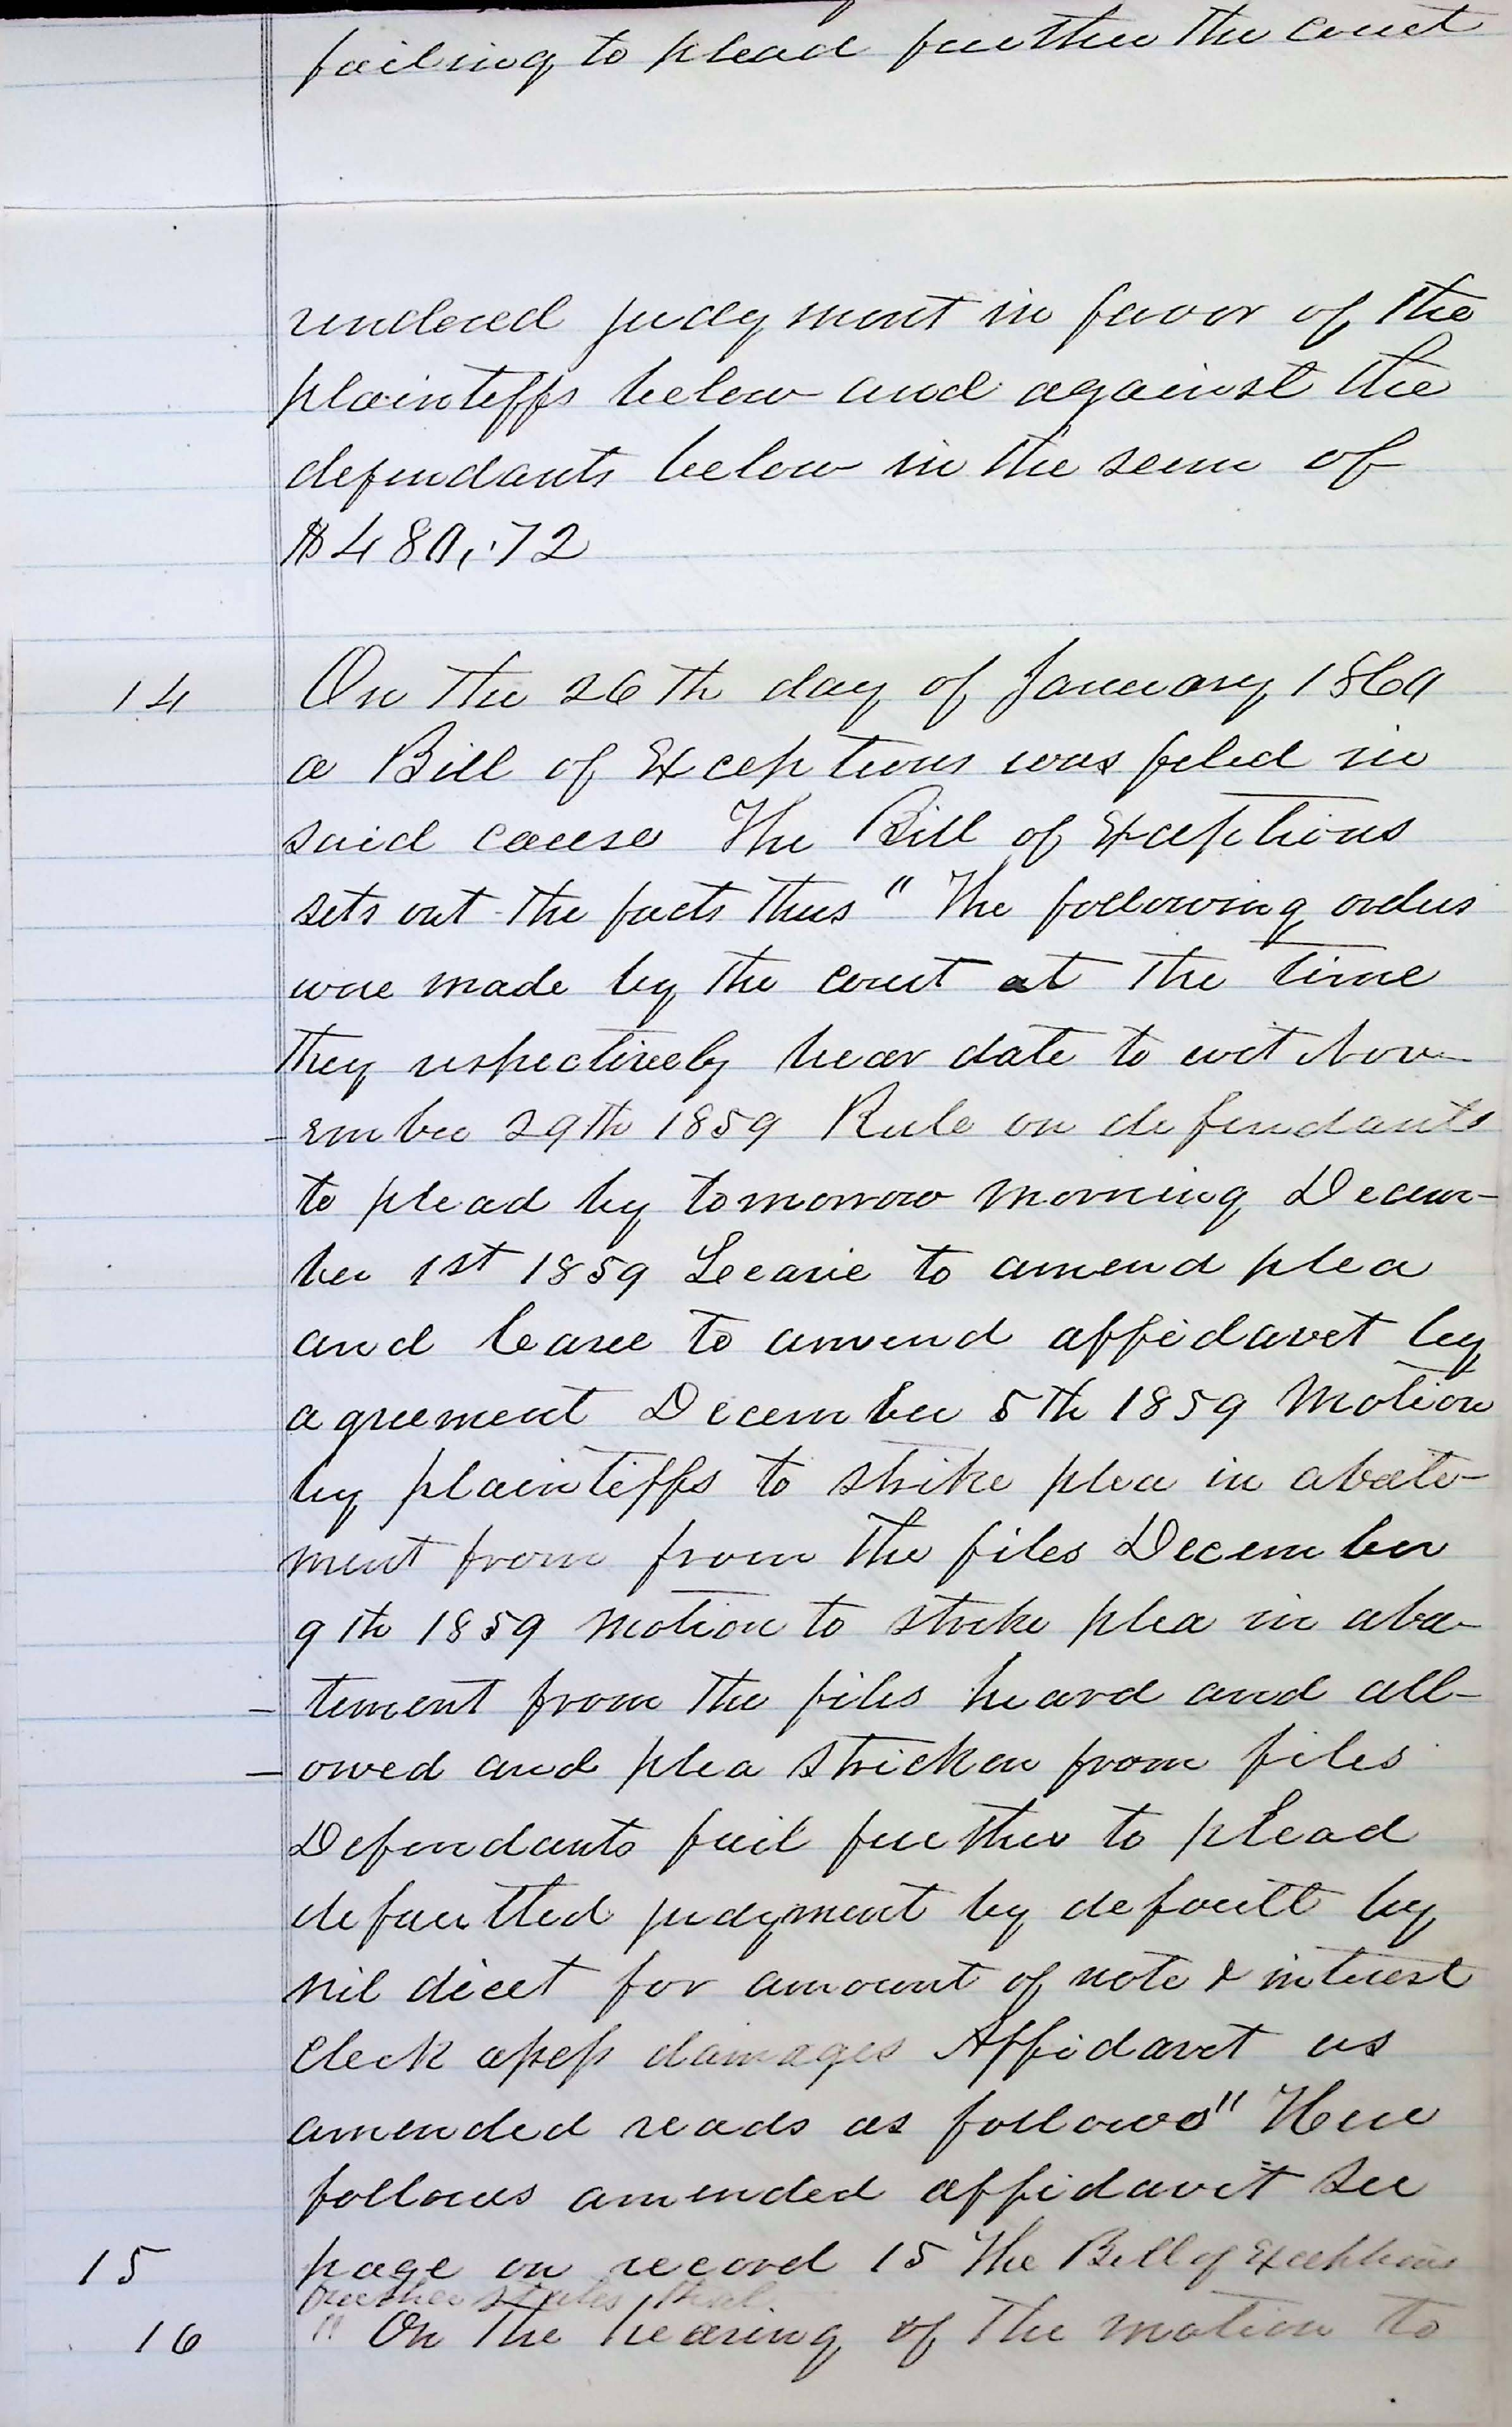 failing to plead further the court
rendered judgment in favor of the
plaintiffs below and against the
defendants below in the sum of
$480,.72
14 On the 26th day of January 1860
a Bill of Exceptions was filed in
said cause The Bill of Exceptions
sets out the facts thus " The following orders
were made by the court at the time
they respectively bear date to wit Nov-
-ember 29th 1859 Rule on defendants
to plead by tomorrow morning Decem-
ber 1st 1859 Leave to amend plea
and leave to amend affidavit by
agreement December 5th 1859 Motion
by plaintiffs to strike plea in abate-
ment from from the files December
9th 1859 Motion to strike plea in aba-
- tement from the files heard and all-
- owed and plea stricken from files
Defendants fail further to plead
defaulted judgment by default by
nil dicet for amount of note & interest
Clerk assess damages Affidavit as
amended reads as follows" Here
follows amended affidavit See
15 page on record 15 The Bill of Exceptions
further states that
16 " On the hearing of the motion to